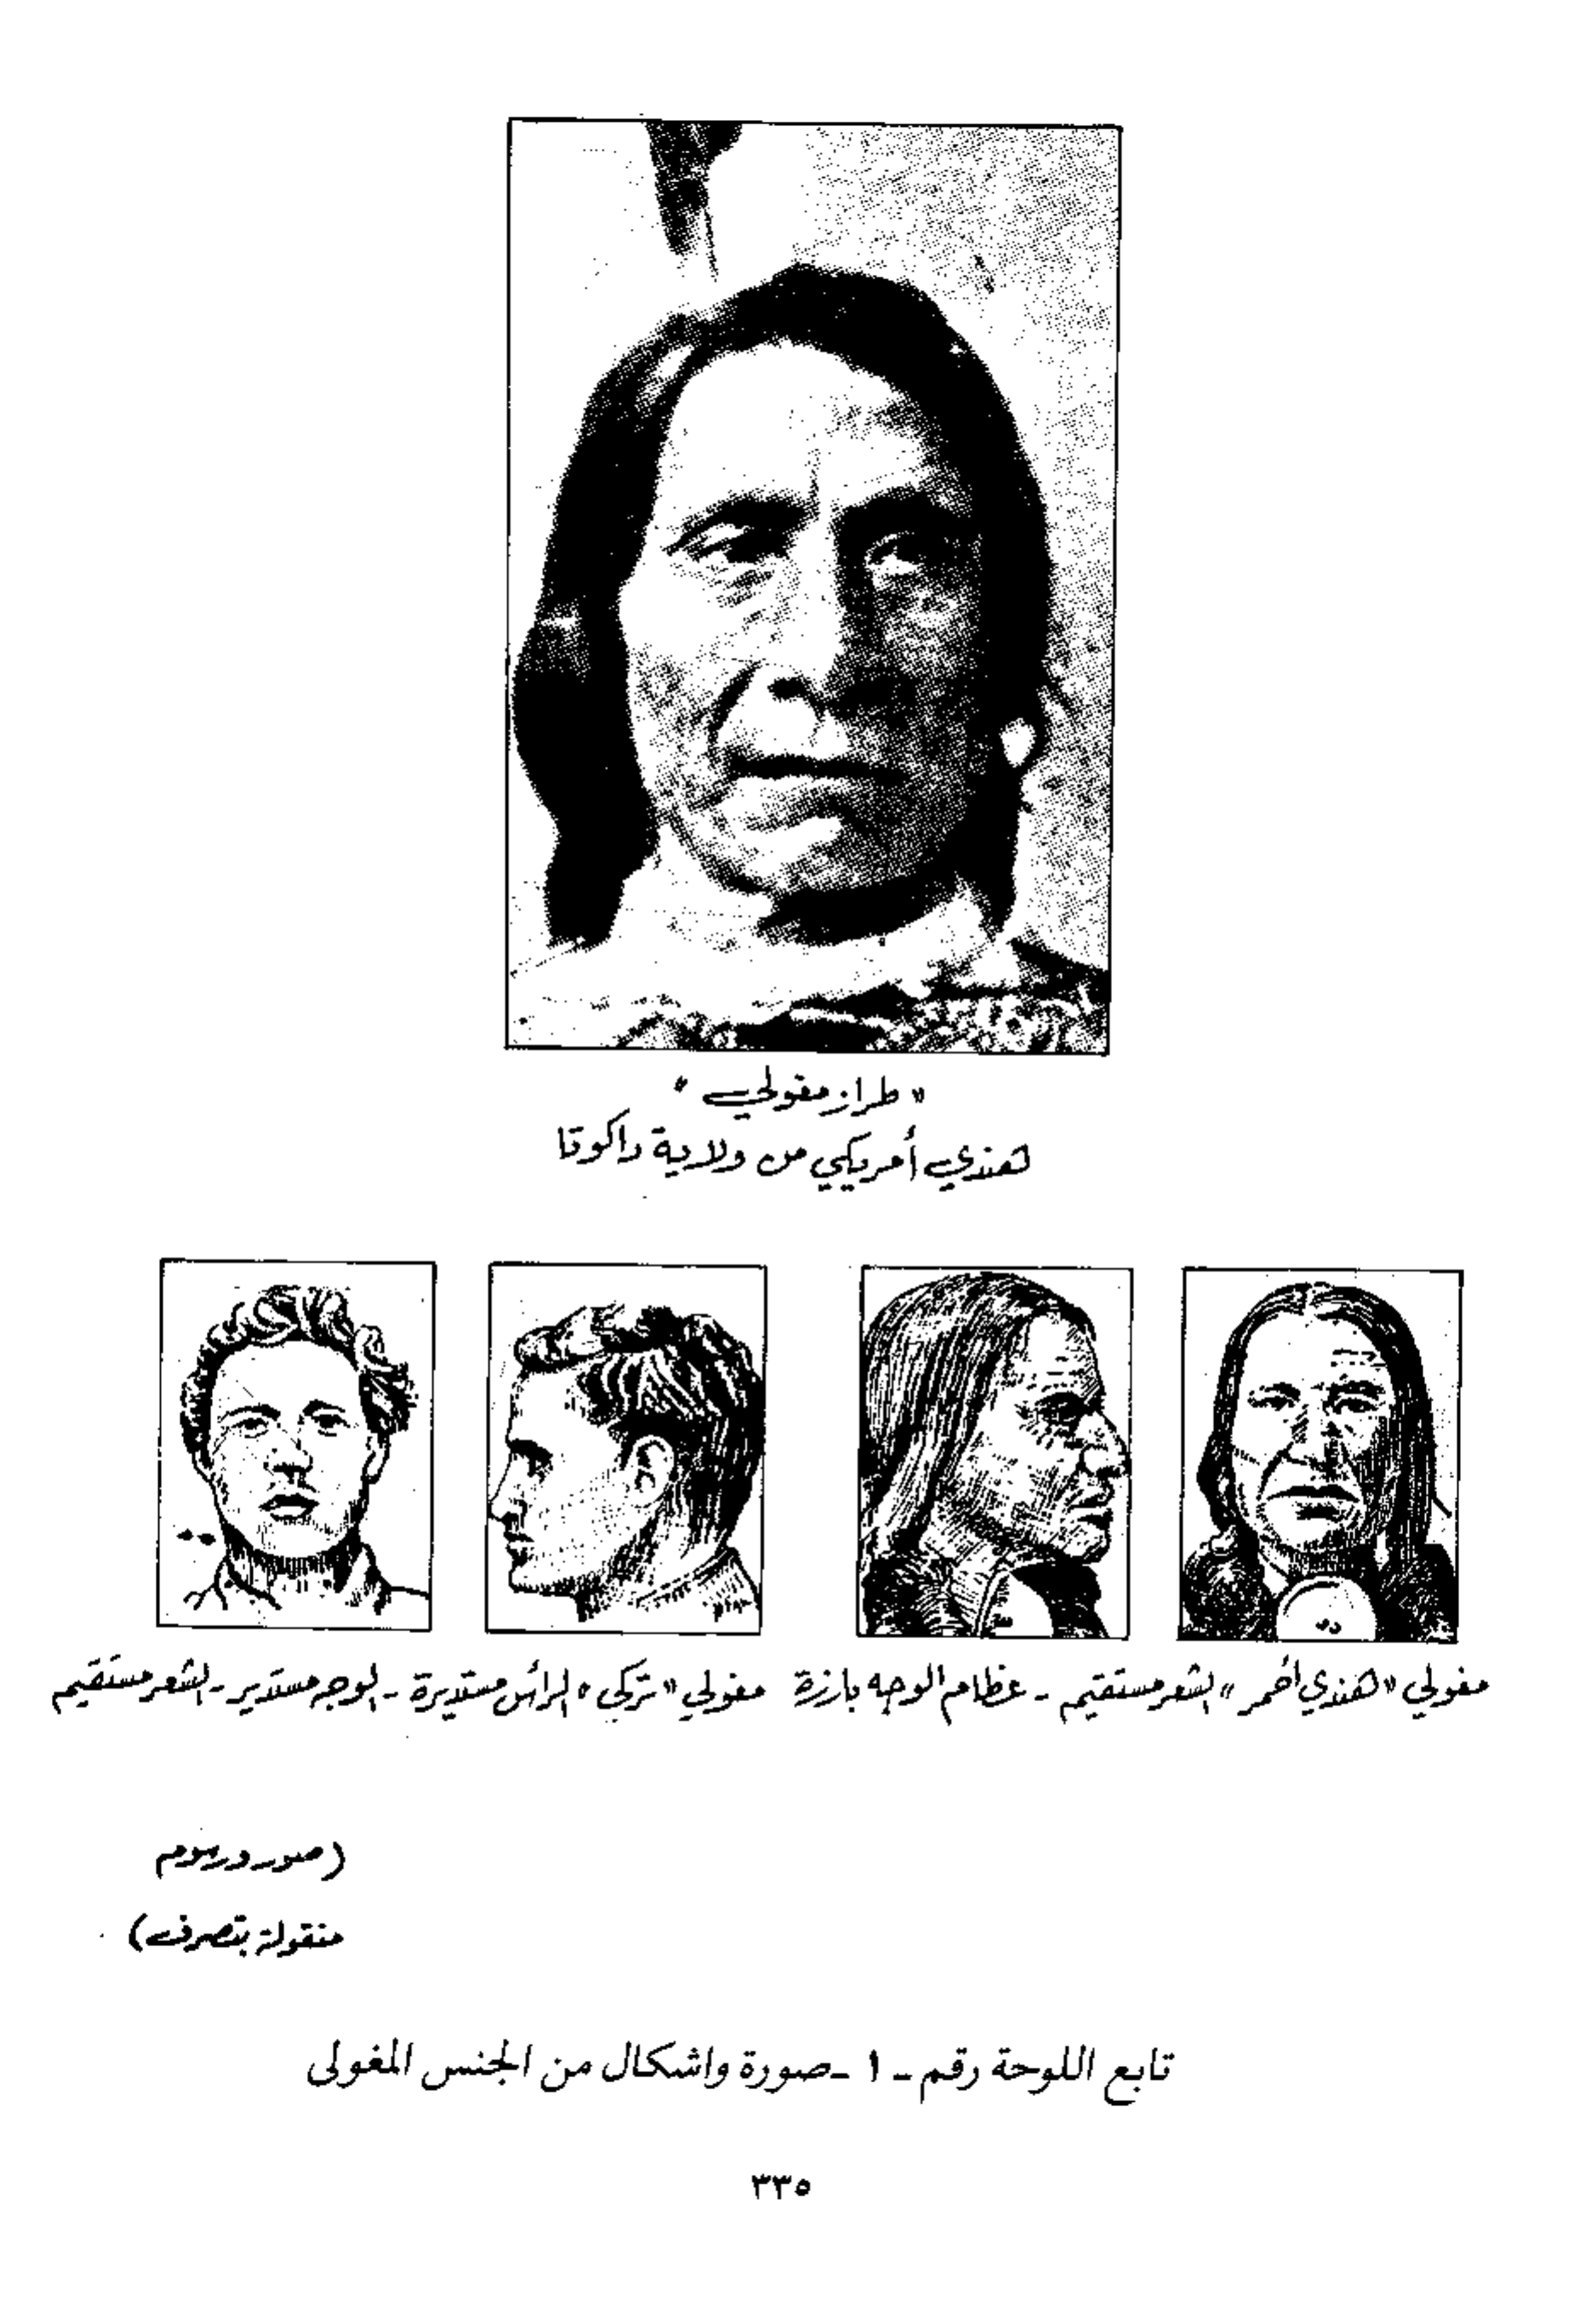 « طراز مغولي »
هندي أمريكي من ولاية داكوتا
مغولي « هندي أحمر » الشعر مستقيم - عظام الوجه بارزة
مغولي « تركي » الرأس مستديرة - الوجه مستدير - الشعر مستقيم
(صور ورسوم
منقولة بتصرف)
تابع اللوحة رقم - ١ - صورة واشكال من الجنس المغولى
٣٣٥